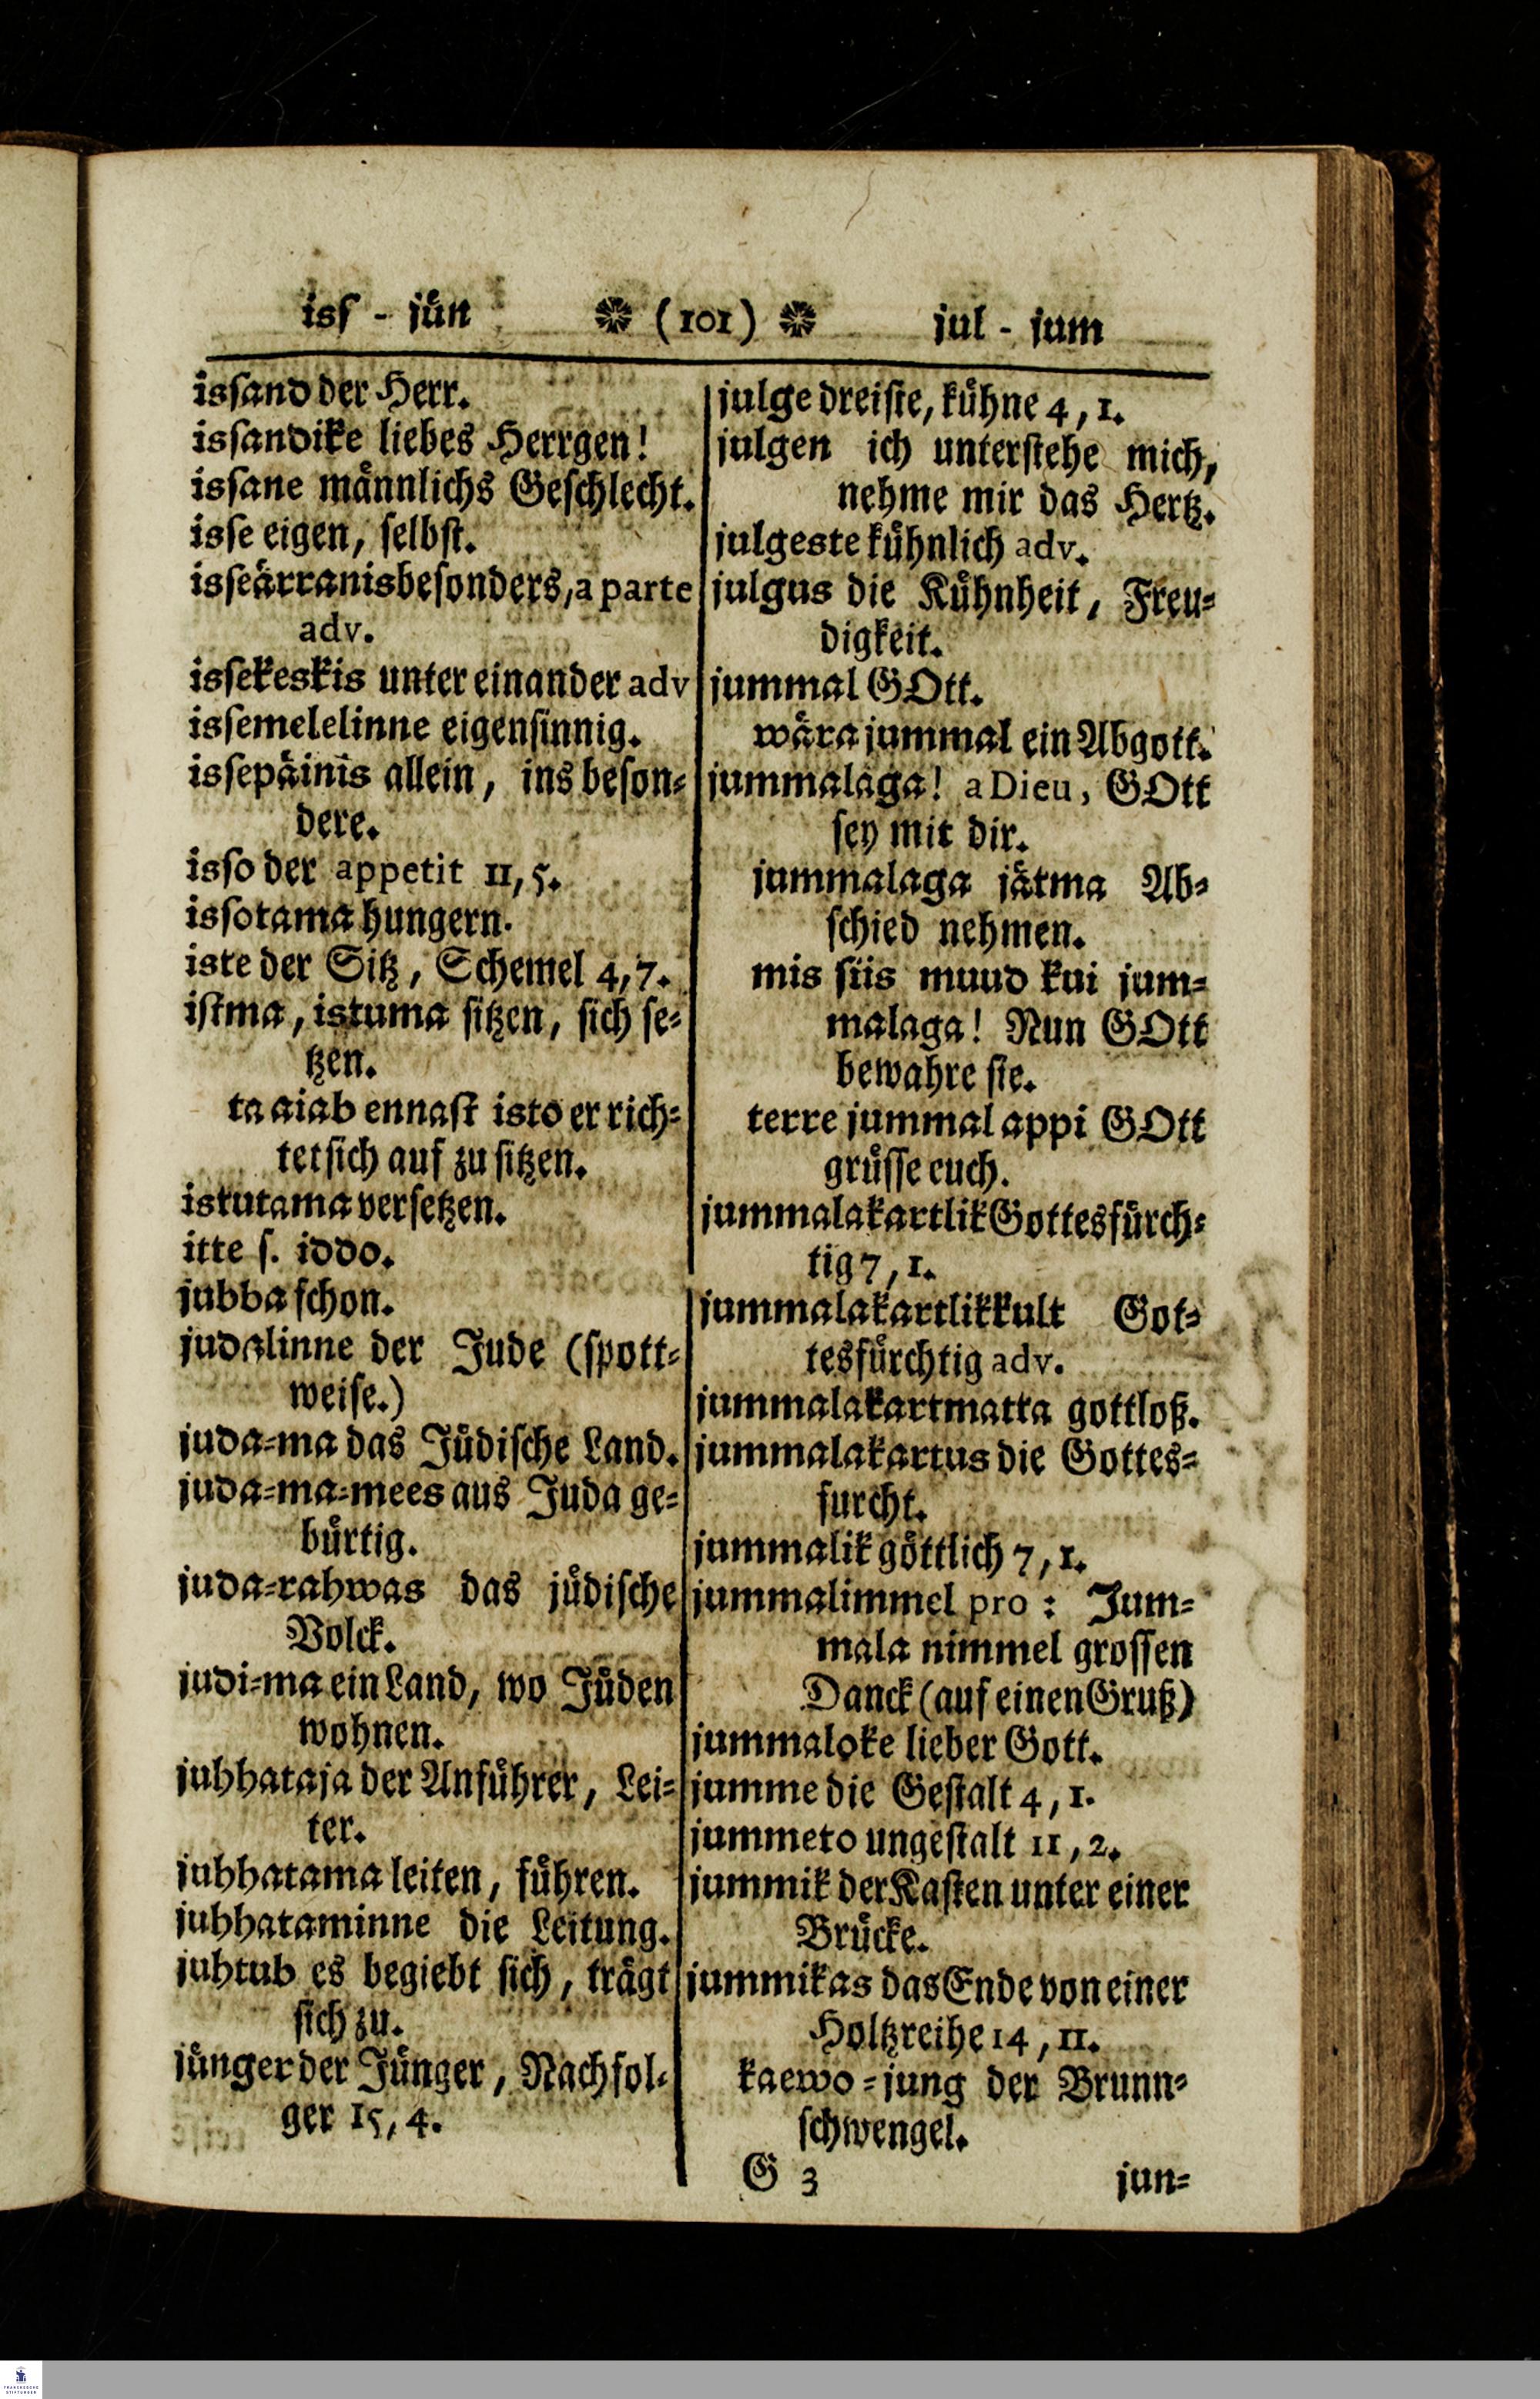 isſ - jůn ❋ (101) ❋ jul - jum
isſand der Herr.
isſandike liebes Herrgen!
isſane maͤnnlichs Geſchlecht.
isſe eigen, ſelbſt.
isſeaͤrranis beſonders, a parte
adv.
isſekeskis unter einander adv
isſemelelinne eigenſinnig.
isſepaͤinis allein, ins beſon-
dere.
isſo der appetit 11, 5.
isſotama hungern.
iste der Sitz, Schemel 4, 7.
iſtma, istuma ſitzen, ſich ſe-
tzen.
ta aiab ennaſt isto er rich-
tet ſich auf zu ſitzen.
istutama verſetzen.
itte ſ. iddo.
jubba ſchon.
judalinne der Jude (ſpott-
weiſe.)
juda-ma das Juͤdiſche Land.
juda-ma-mees aus Juda ge-
buͤrtig.
juda-rahwas das juͤdiſche
Volck.
judi-ma ein Land, wo Juͤden
wohnen.
juhhataja der Anfuͤhrer, Lei-
ter.
juhhatama leiten, fuͤhren.
juhhataminne die Leitung.
juhtub es begiebt ſich, traͤgt
ſich zu.
juͤnger der Juͤnger, Nachfol-
ger 15, 4.
julge dreiſte, kuͤhne 4, 1.
julgen ich unterſtehe mich,
nehme mir das Hertz.
julgeste kuͤhnlich adv.
julgus die Kuͤhnheit, Freu-
digkeit.
jummal GOtt.
waͤra jummal ein Abgott.
jummalaga! a Dieu, GOtt
ſey mit dir.
jummalaga jaͤtma Ab-
ſchied nehmen.
mis ſiis muud kui jum-
malaga! Nun GOtt
bewahre ſie.
terre jummal appi GOtt
gruͤſſe euch.
jummalakartlik Gottesfuͤrch-
tig 7, 1.
jummalakartlikkult Got-
tesfuͤrchtig adv.
jummalakartmatta gottloß.
jummalakartus die Gottes-
furcht.
jummalik goͤttlich 7, 1.
jummalimmel pro: Jum-
mala nimmel groſſen
Danck (auf einen Gruß)
jummaloke lieber Gott.
jumme die Geſtalt 4, 1.
jummeto ungeſtalt 11, 2.
jummik der Kaſten unter einer
Bruͤcke.
jummikas das Ende von einer
Holtzreihe 14, 11.
kaewo-jung der Brunn-
ſchwengel.
G 3 jun-
FRANCKESCHE
STIFTUNGEN